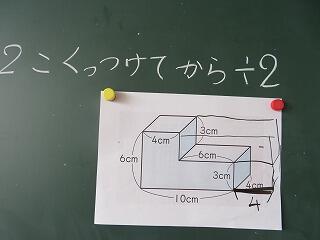 2こくっつけてから÷2
3cm
4cm
6cm
6cm
3cm
4cm
10cm
4